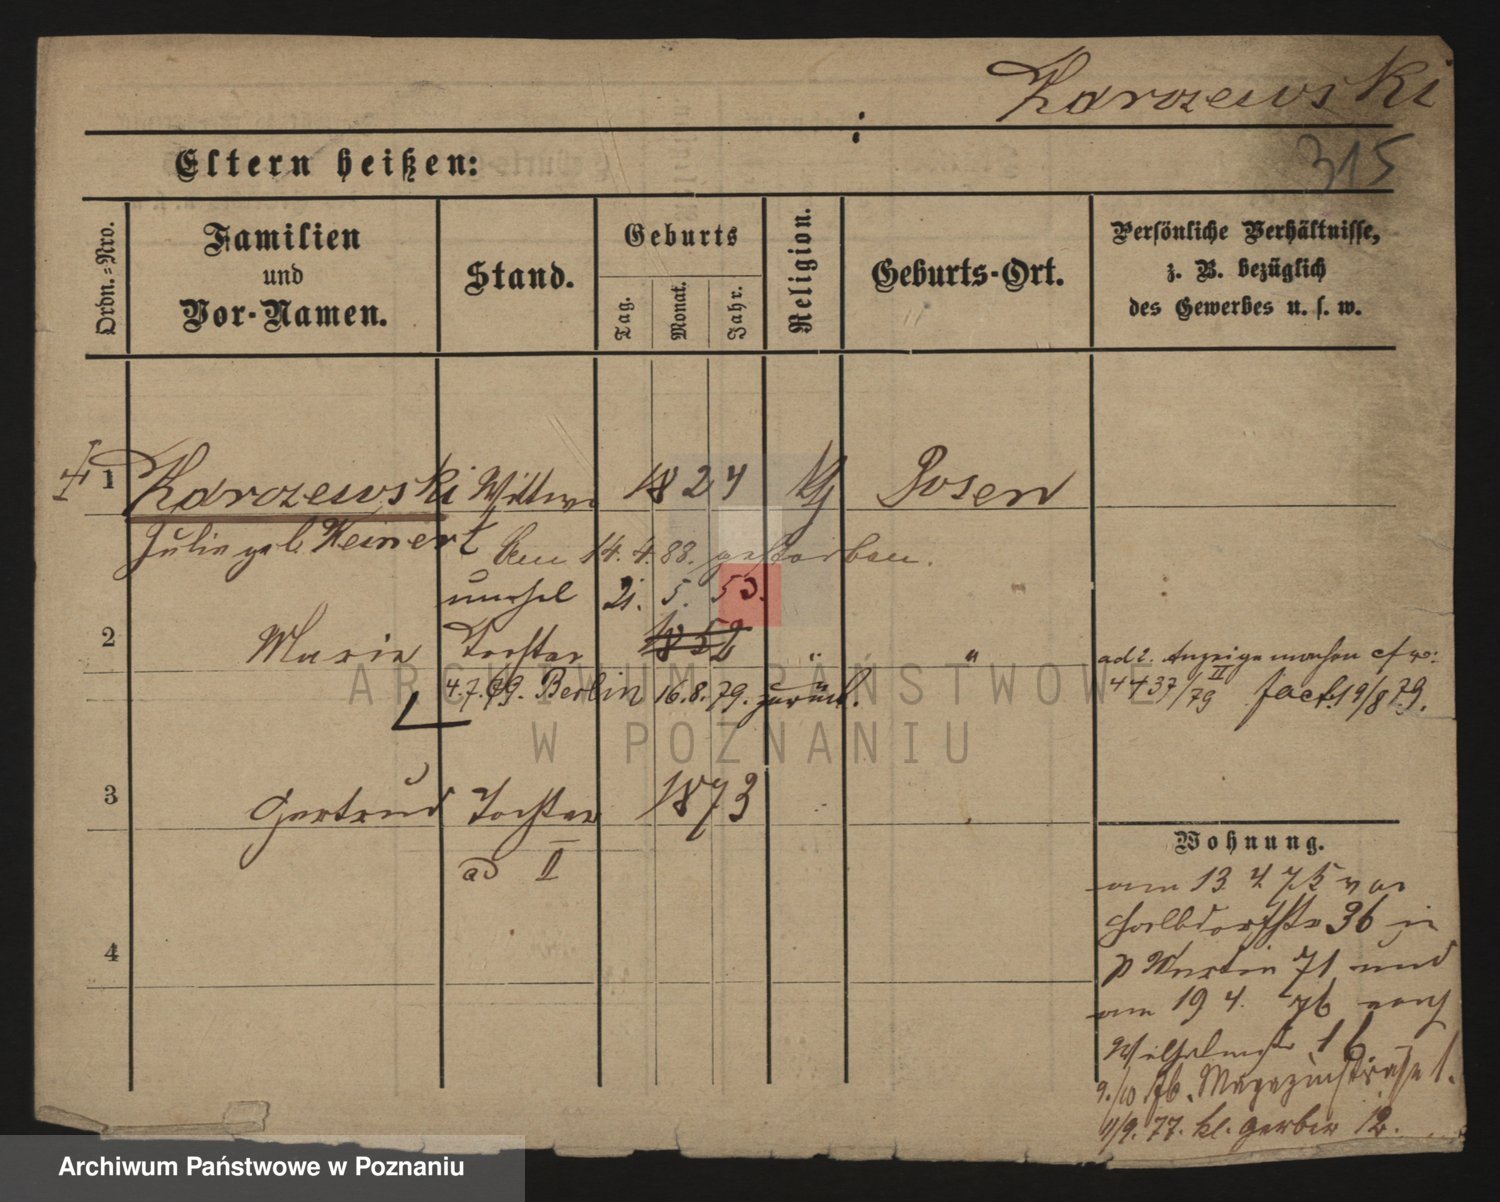 Karczewski
315
Eltern heißen:
Ordn.=Nro.
Familien
und
Vor-Namen.
Stand.
Geburts
Tag.
Monat.
Jahr.
Religion.
Geburts-Ort.
Persönliche Verhältnisse,
z. B. bezüglich
des Gewerbes u. s. w.
1 Karczewski Wittwe 1824 Posen
Julie geb. Weinert
Am 14. 4. 88. gestorben.
unehel 21. 5. 53.
2 Marie Tochter 1852 " "
4.7.79. Berlin 16.8.79. zurück.
ad 2. Anzeige machen cf
4437/79 II fact. 19/8 79.
3 Gertrud Tochter 1873
ad II
4
Wohnung.
am 13 4 75 von
Halbdorfstr 36 in
St Martin 71 und
am 19 4. 76 nach
Wilhelmstr 16.
9./10 76. Magazinstraße 1.
11/9. 77. kl. Gerber 12.
ARCHIWUM PAŃSTWOWE
W POZNANIU
Archiwum Państwowe w Poznaniu